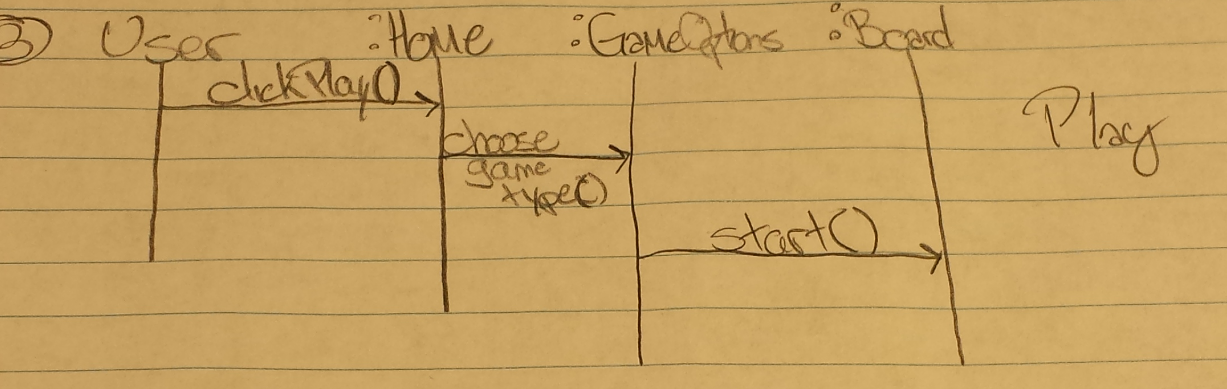 3) User :Home :GameOptions :Board
clickPlay()
Play
choose
game
type()
start()